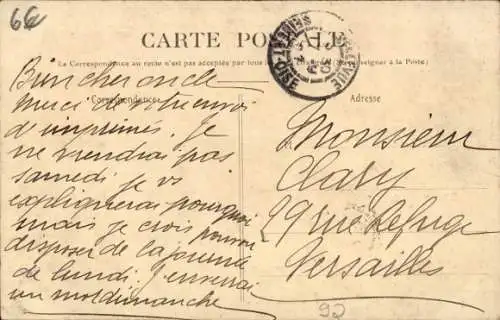 66
CARTE POSTALE
La Correspondance au recto n'est pas acceptée par tous
(Se renseigner à la Poste)
BELLEVUE
SEINE-ET-OISE
Correspondance
Adresse
Bien cher oncle
Merci de votre envoi
d'imprimés. Je
ne viendrai pas
samedi je vs
expliquerai pourquoi
mais je crois pouvoir
disposer de la journée
de lundi. J'enverrai
un mot dimanche
Monsieur
Clary
29 rue Refuge
Versailles
92